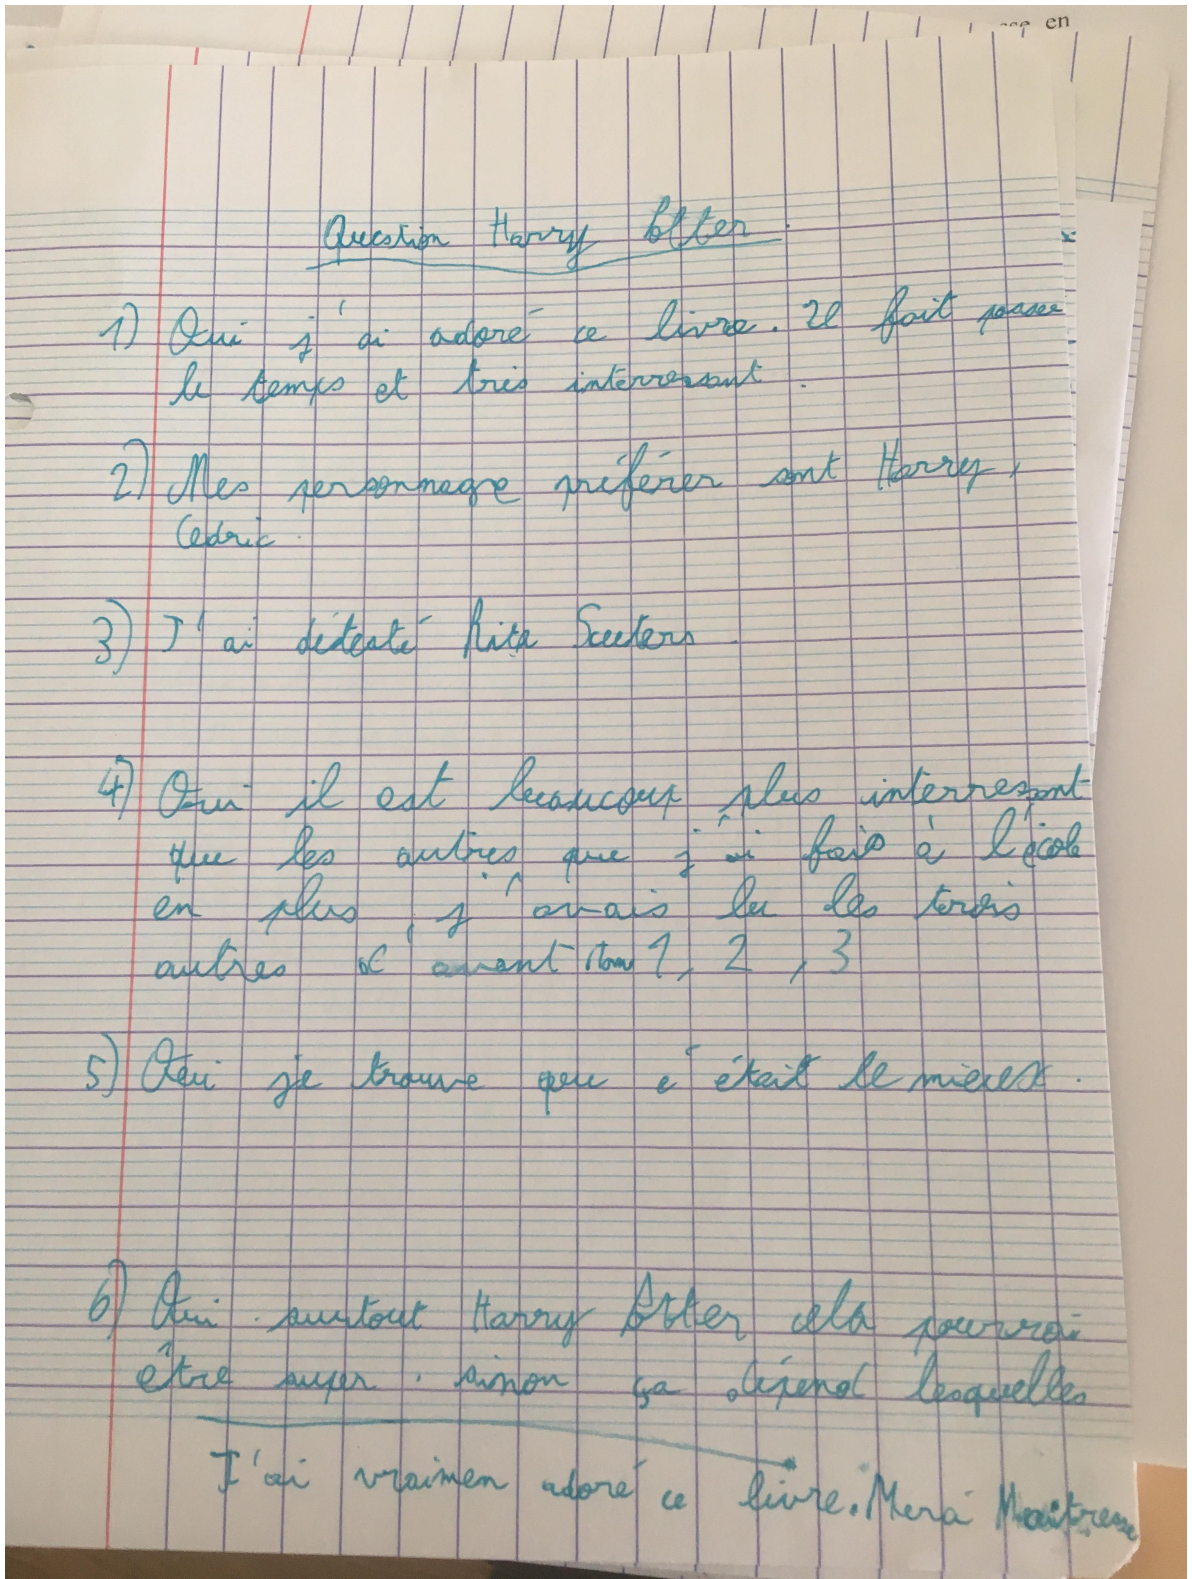 en
Question Harry Potter
1) Oui j'ai adoré ce livre. Il fait passer
le temps et très interressant.
2) Mes personnage préférer sont Harry,
Cedric.
3) J'ai détesté Rita Sceeters
4) Oui il est beaucoup plus interressant
que les autres que j'ai fais à l'école
en plus, j'avais lu les trois
autres d'avant tom 1, 2, 3
5) Oui je trouve que c'était le mieux.
6) Oui surtout Harry Potter cela pourrai
être super. sinon ça dépend lesquelles
J'ai vraimen adoré ce livre. Merci Maitresse